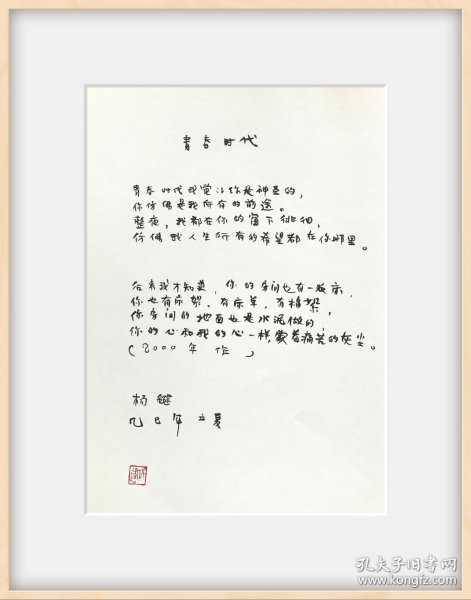 青春时代
青春时代我觉得你是神圣的，
你仿佛是我所有的前途。
整夜，我都在你的窗下徘徊，
仿佛我人生所有的希望都在你那里。
后来我才知道，你的房间也有一张床，
你也有床架，有床单，有棉絮，
你房间的地面也是水泥做的，
你的心和我的心一样，蒙着痛苦的灰尘。
（2000年作）
杨键
乙巳年立夏
孔夫子旧书网
www.kongfz.com